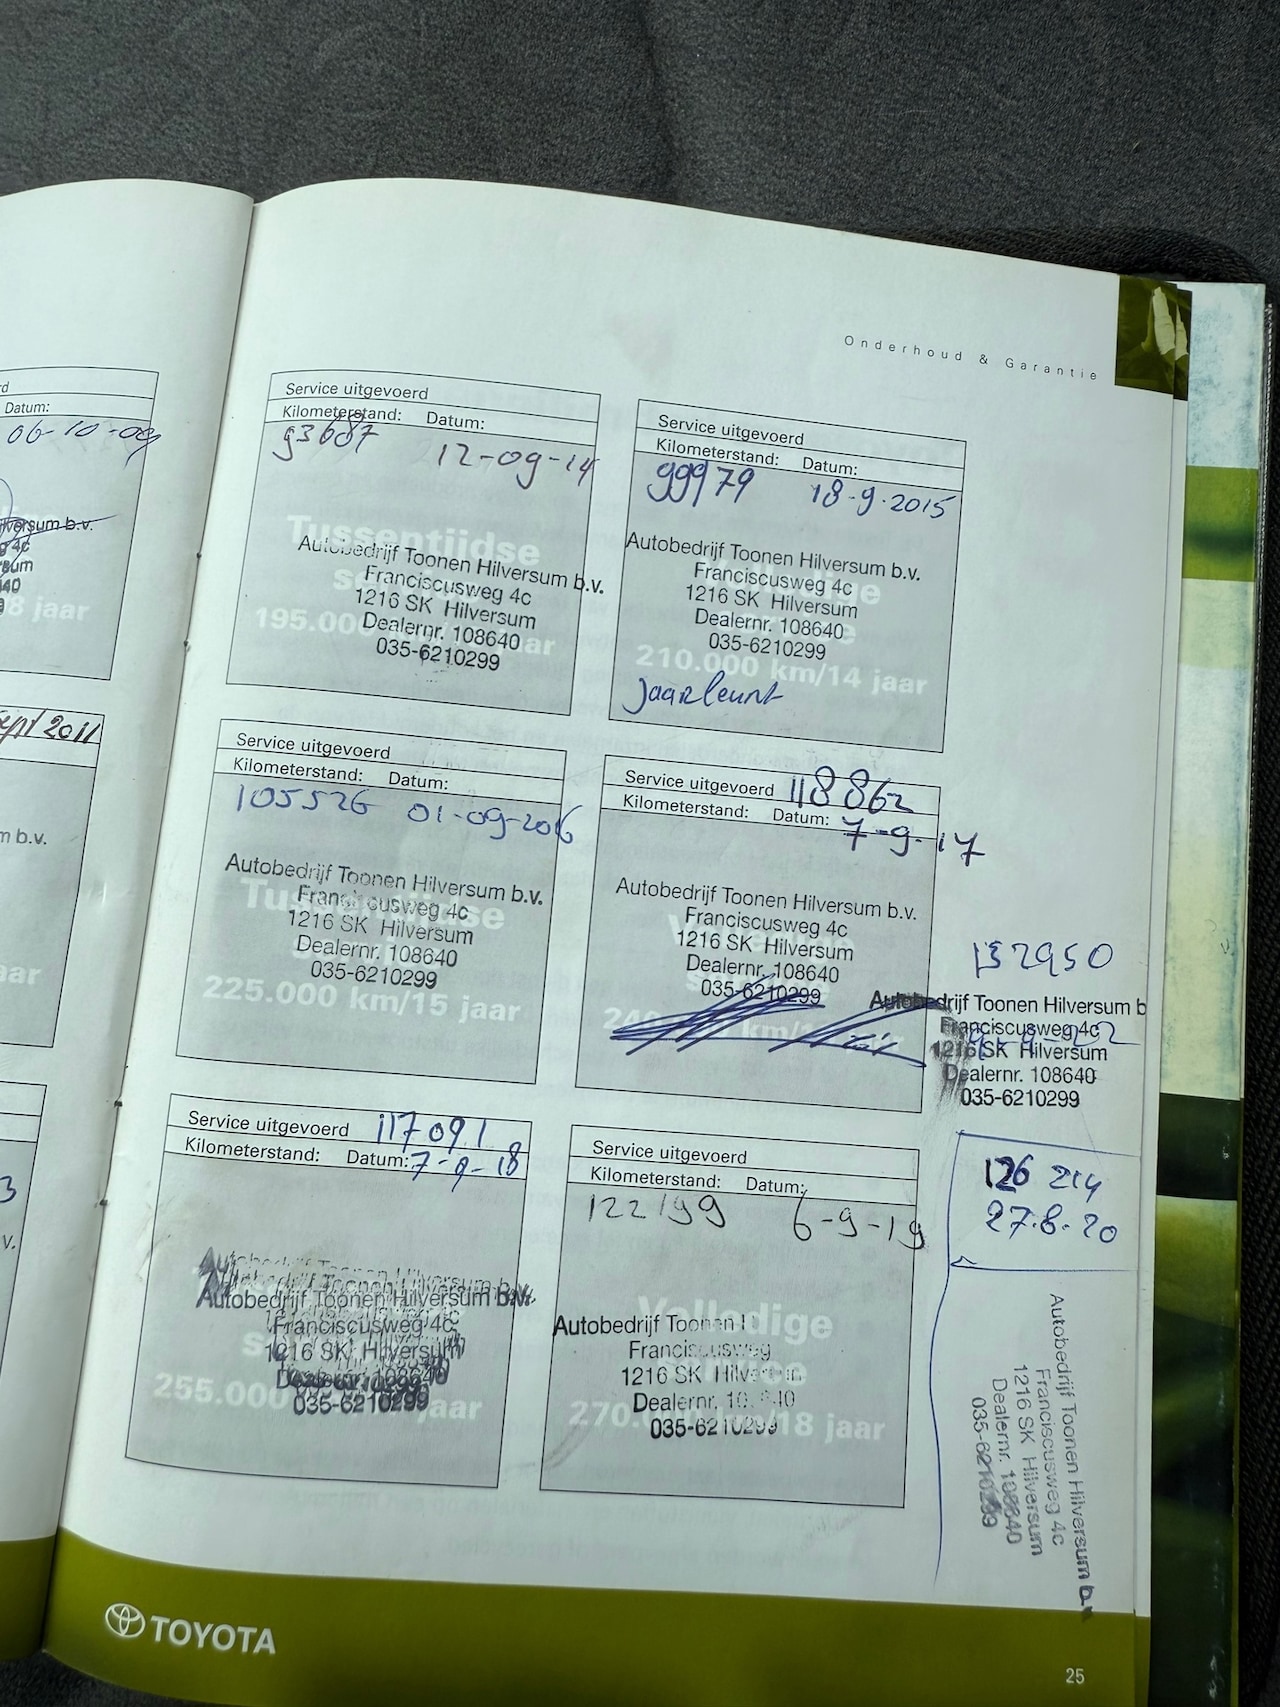 Onderhoud & Garantie
Datum:
06-10-09
8 jaar
2011
Service uitgevoerd
Kilometerstand: Datum:
93687 12-09-14
Tussentijdse
Autobedrijf Toonen Hilversum b.v.
Franciscusweg 4c
1216 SK Hilversum
Dealernr. 108640
195.000
035-6210299
Service uitgevoerd
Kilometerstand: Datum:
99979 18-9-2015
Autobedrijf Toonen Hilversum b.v.
Franciscusweg 4c
1216 SK Hilversum
Dealernr. 108640
035-6210299
210.000 km/14 jaar
Service uitgevoerd
Kilometerstand: Datum:
105526 01-09-2016
Autobedrijf Toonen Hilversum b.v.
Franciscusweg 4c
Tussentijdse
1216 SK Hilversum
Dealernr. 108640
035-6210299
225.000 km/15 jaar
Service uitgevoerd 118862
Kilometerstand: Datum: 7-9-17
Autobedrijf Toonen Hilversum b.v.
Franciscusweg 4c
1216 SK Hilversum
Dealernr. 108640
035-6210299
132950
Autobedrijf Toonen Hilversum b
Franciscusweg 4c
1216 SK Hilversum
Dealernr. 108640
035-6210299
Service uitgevoerd 117091
Kilometerstand: Datum: 7-9-18
Autobedrijf Toonen Hilversum b.v.
Franciscusweg 4c
1216 SK Hilversum
Dealernr. 108640
035-6210299
255.000 jaar
Service uitgevoerd
Kilometerstand: Datum:
122199 6-9-19
Volledige
Autobedrijf Toonen
Franciscusweg
service
1216 SK Hilversum
Dealernr.
035-6210299
18 jaar
126 214
27-8-20
Autobedrijf Toonen Hilversum b.v
Franciscusweg 4c
1216 SK Hilversum
Dealernr. 108640
035-6210299
TOYOTA
25